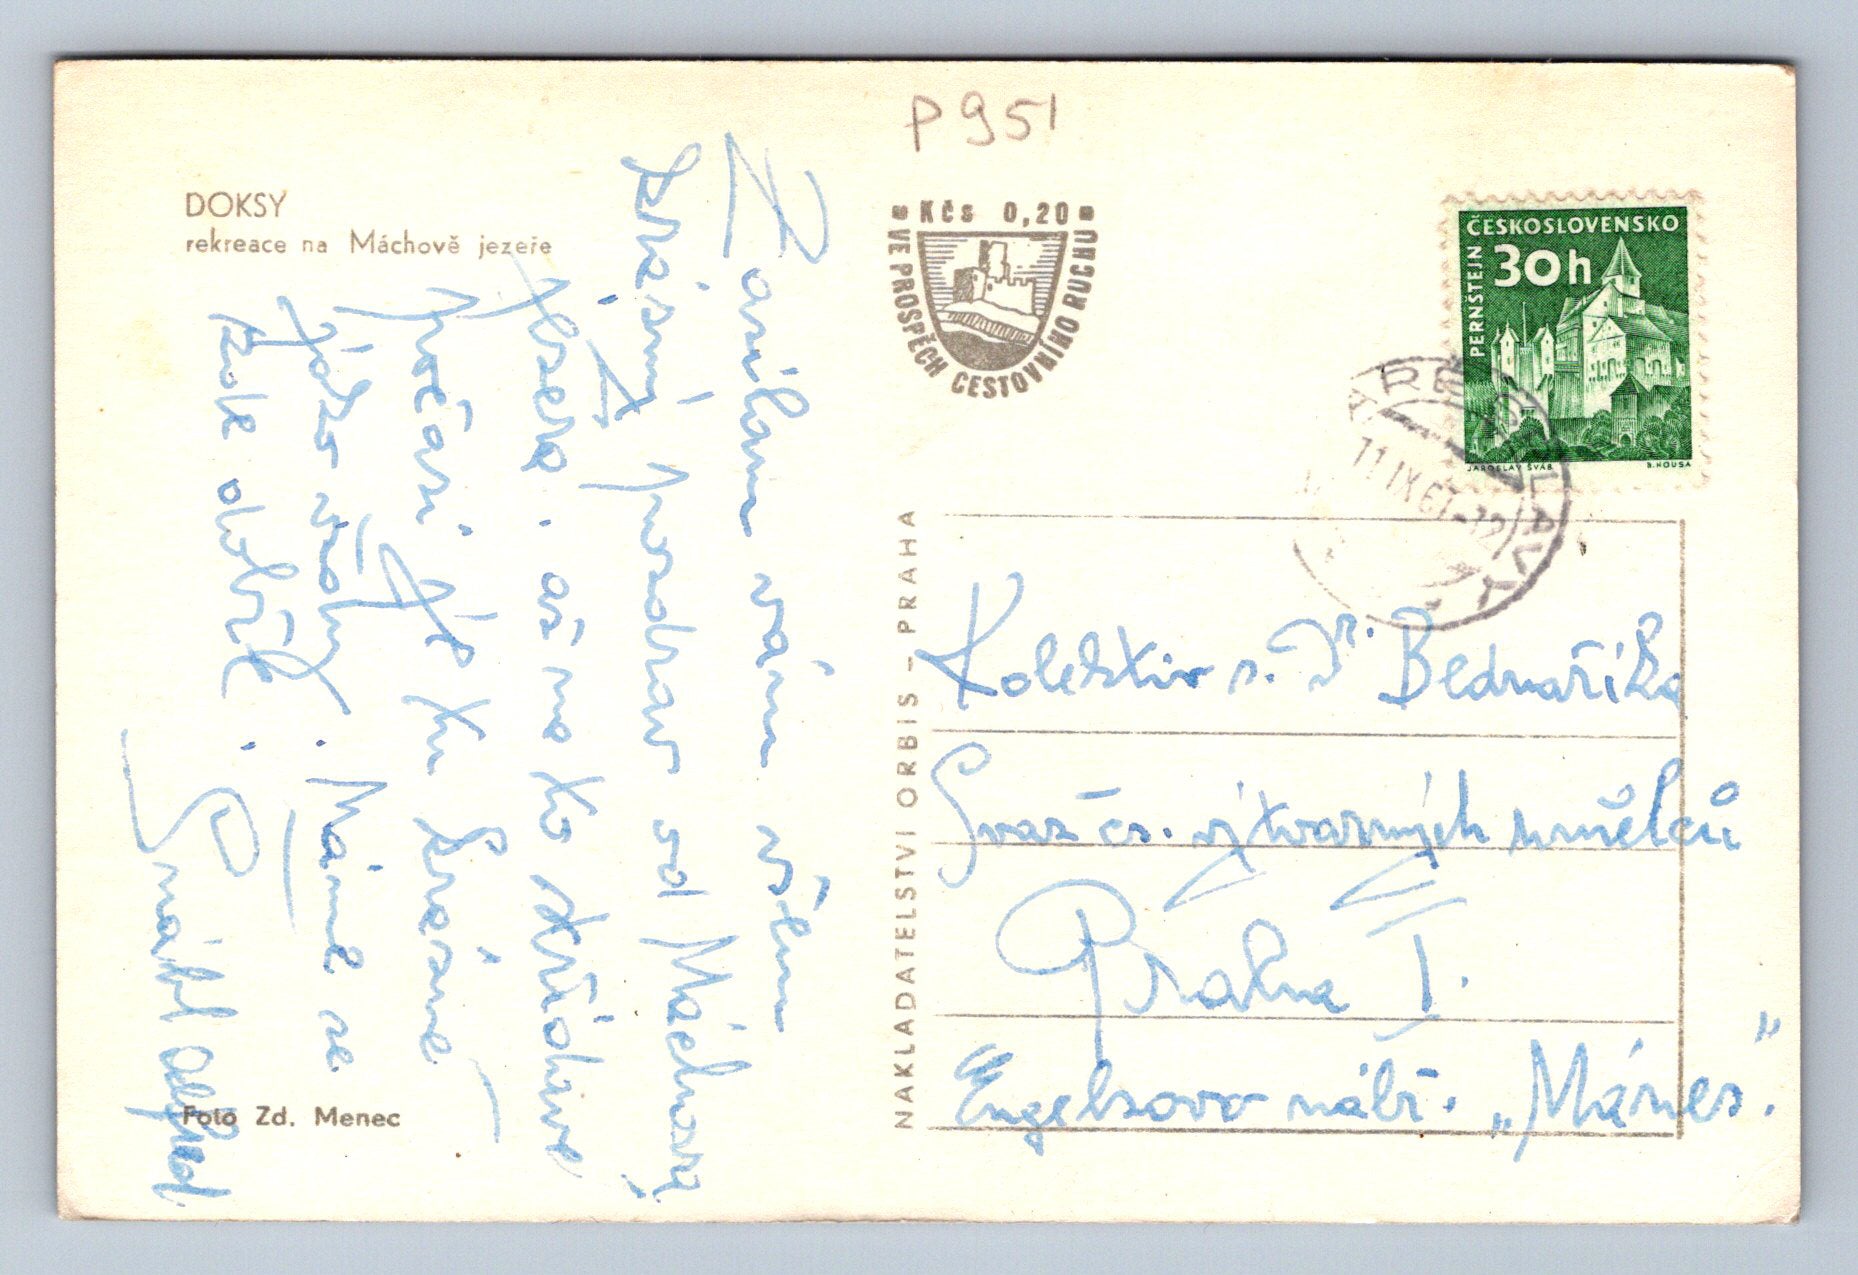 P951
DOKSY
rekreace na Máchově jezeře
Kčs 0,20
VE PROSPĚCH CESTOVNÍHO RUCHU
ČESKOSLOVENSKO
30h
PERNŠTEJN
JAROSLAV ŠVÁB
B. HOUSA
11 IX 67-12
Zasílám vám všem
krásný pozdrav od Máchový
Jezera. až na to střídavé
počasí je tu krásně
jako vždy. Máme se
zde dobře.
NAKLADATELSTVÍ ORBIS – PRAHA
Kolektiv s. Dr. Bednaříka
Svaz čs. výtvarných umělců
Praha I.
Engelsovo nábř. „Mánes".
Foto Zd. Menec